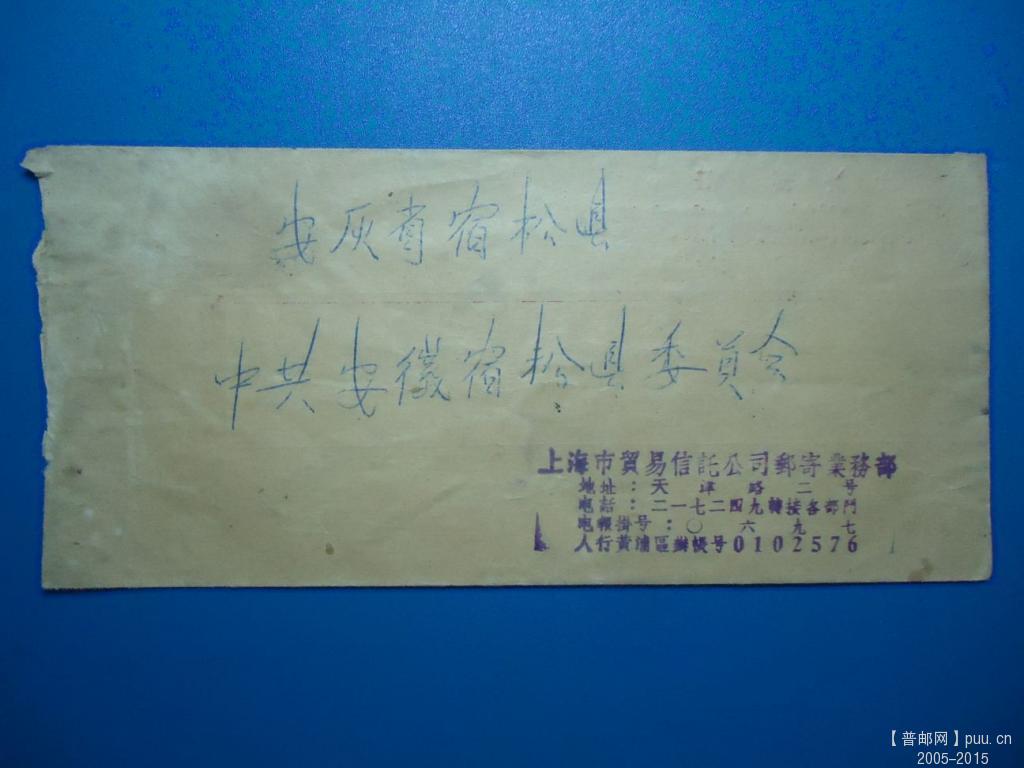 安灰省宿松县
中共安徽宿松县委員会
上海市貿易信託公司郵寄業務部
地址：天津路二号
电話：二一七二四九轉接各部門
电報掛号：〇六九七
人行黄浦區辦帳号0102576
【普邮网】puu.cn
2005-2015